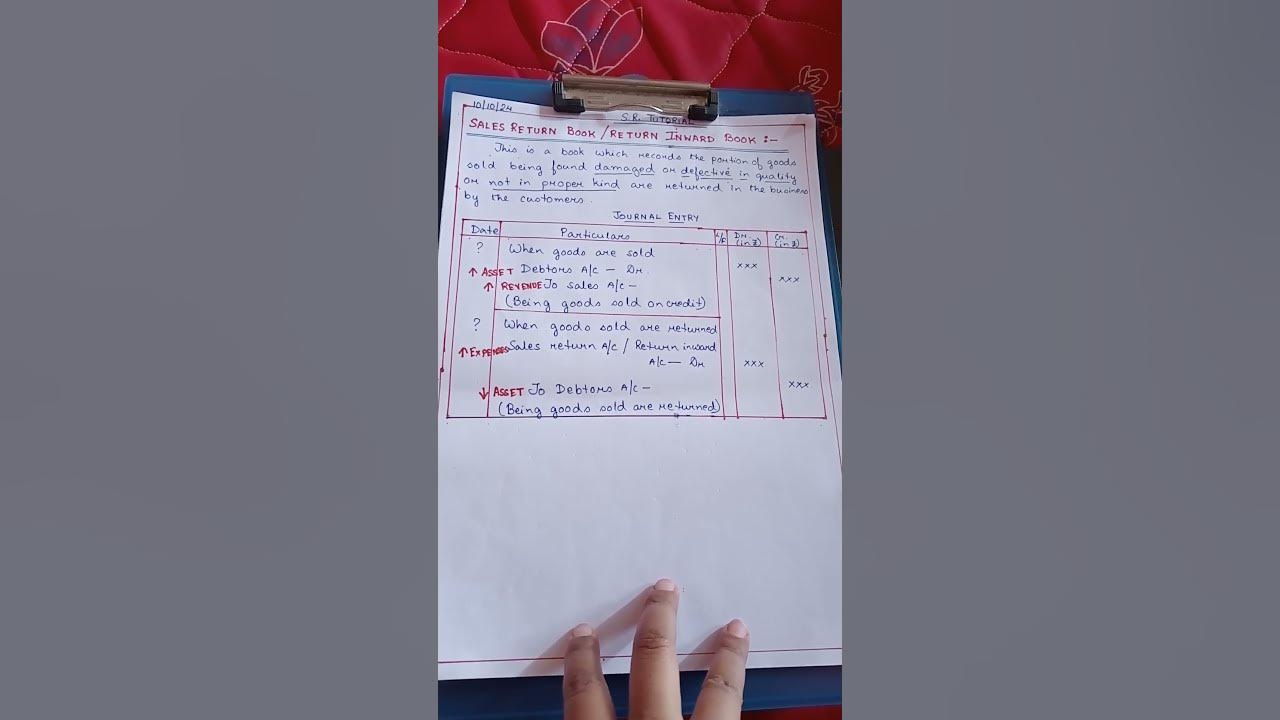 10/10/24
S.R. TUTORIAL
SALES RETURN BOOK / RETURN INWARD BOOK :-
This is a book which records the portion of goods
sold being found damaged or defective in quality
or not in proper kind are returned in the business
by the customers.
JOURNAL ENTRY
Date Particulars L/F Dr. (in ₹) Cr. (in ₹)
? When goods are sold
↑ ASSET Debtors A/c – Dr. xxx
↑ REVENUE To Sales A/c – xxx
(Being goods sold on credit)
? When goods sold are returned
↑ EXPENSES Sales return A/c / Return inward
A/c – Dr xxx
↓ ASSET To Debtors A/c – xxx
(Being goods sold are returned)